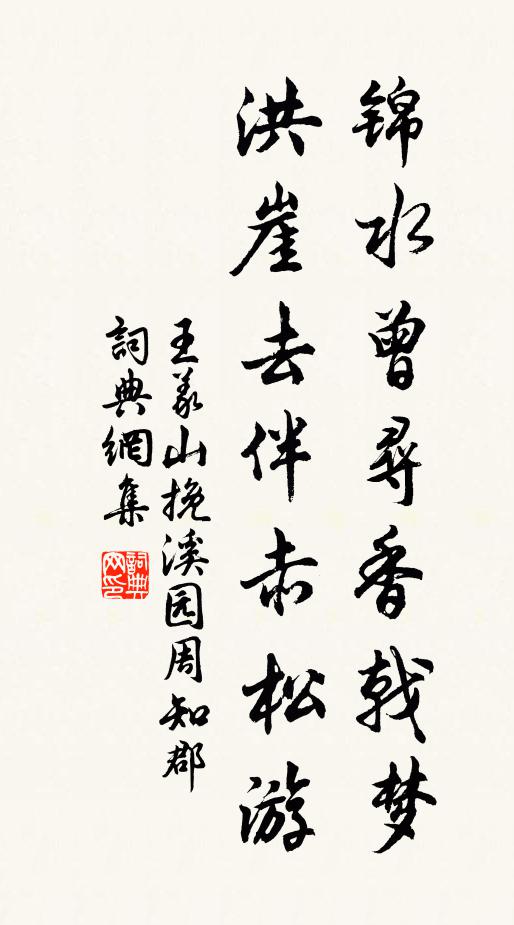 锦水曾寻香戟梦
洪崖去伴赤松游
王义山挽溪园周知郡
詞典網集
詞典
网印